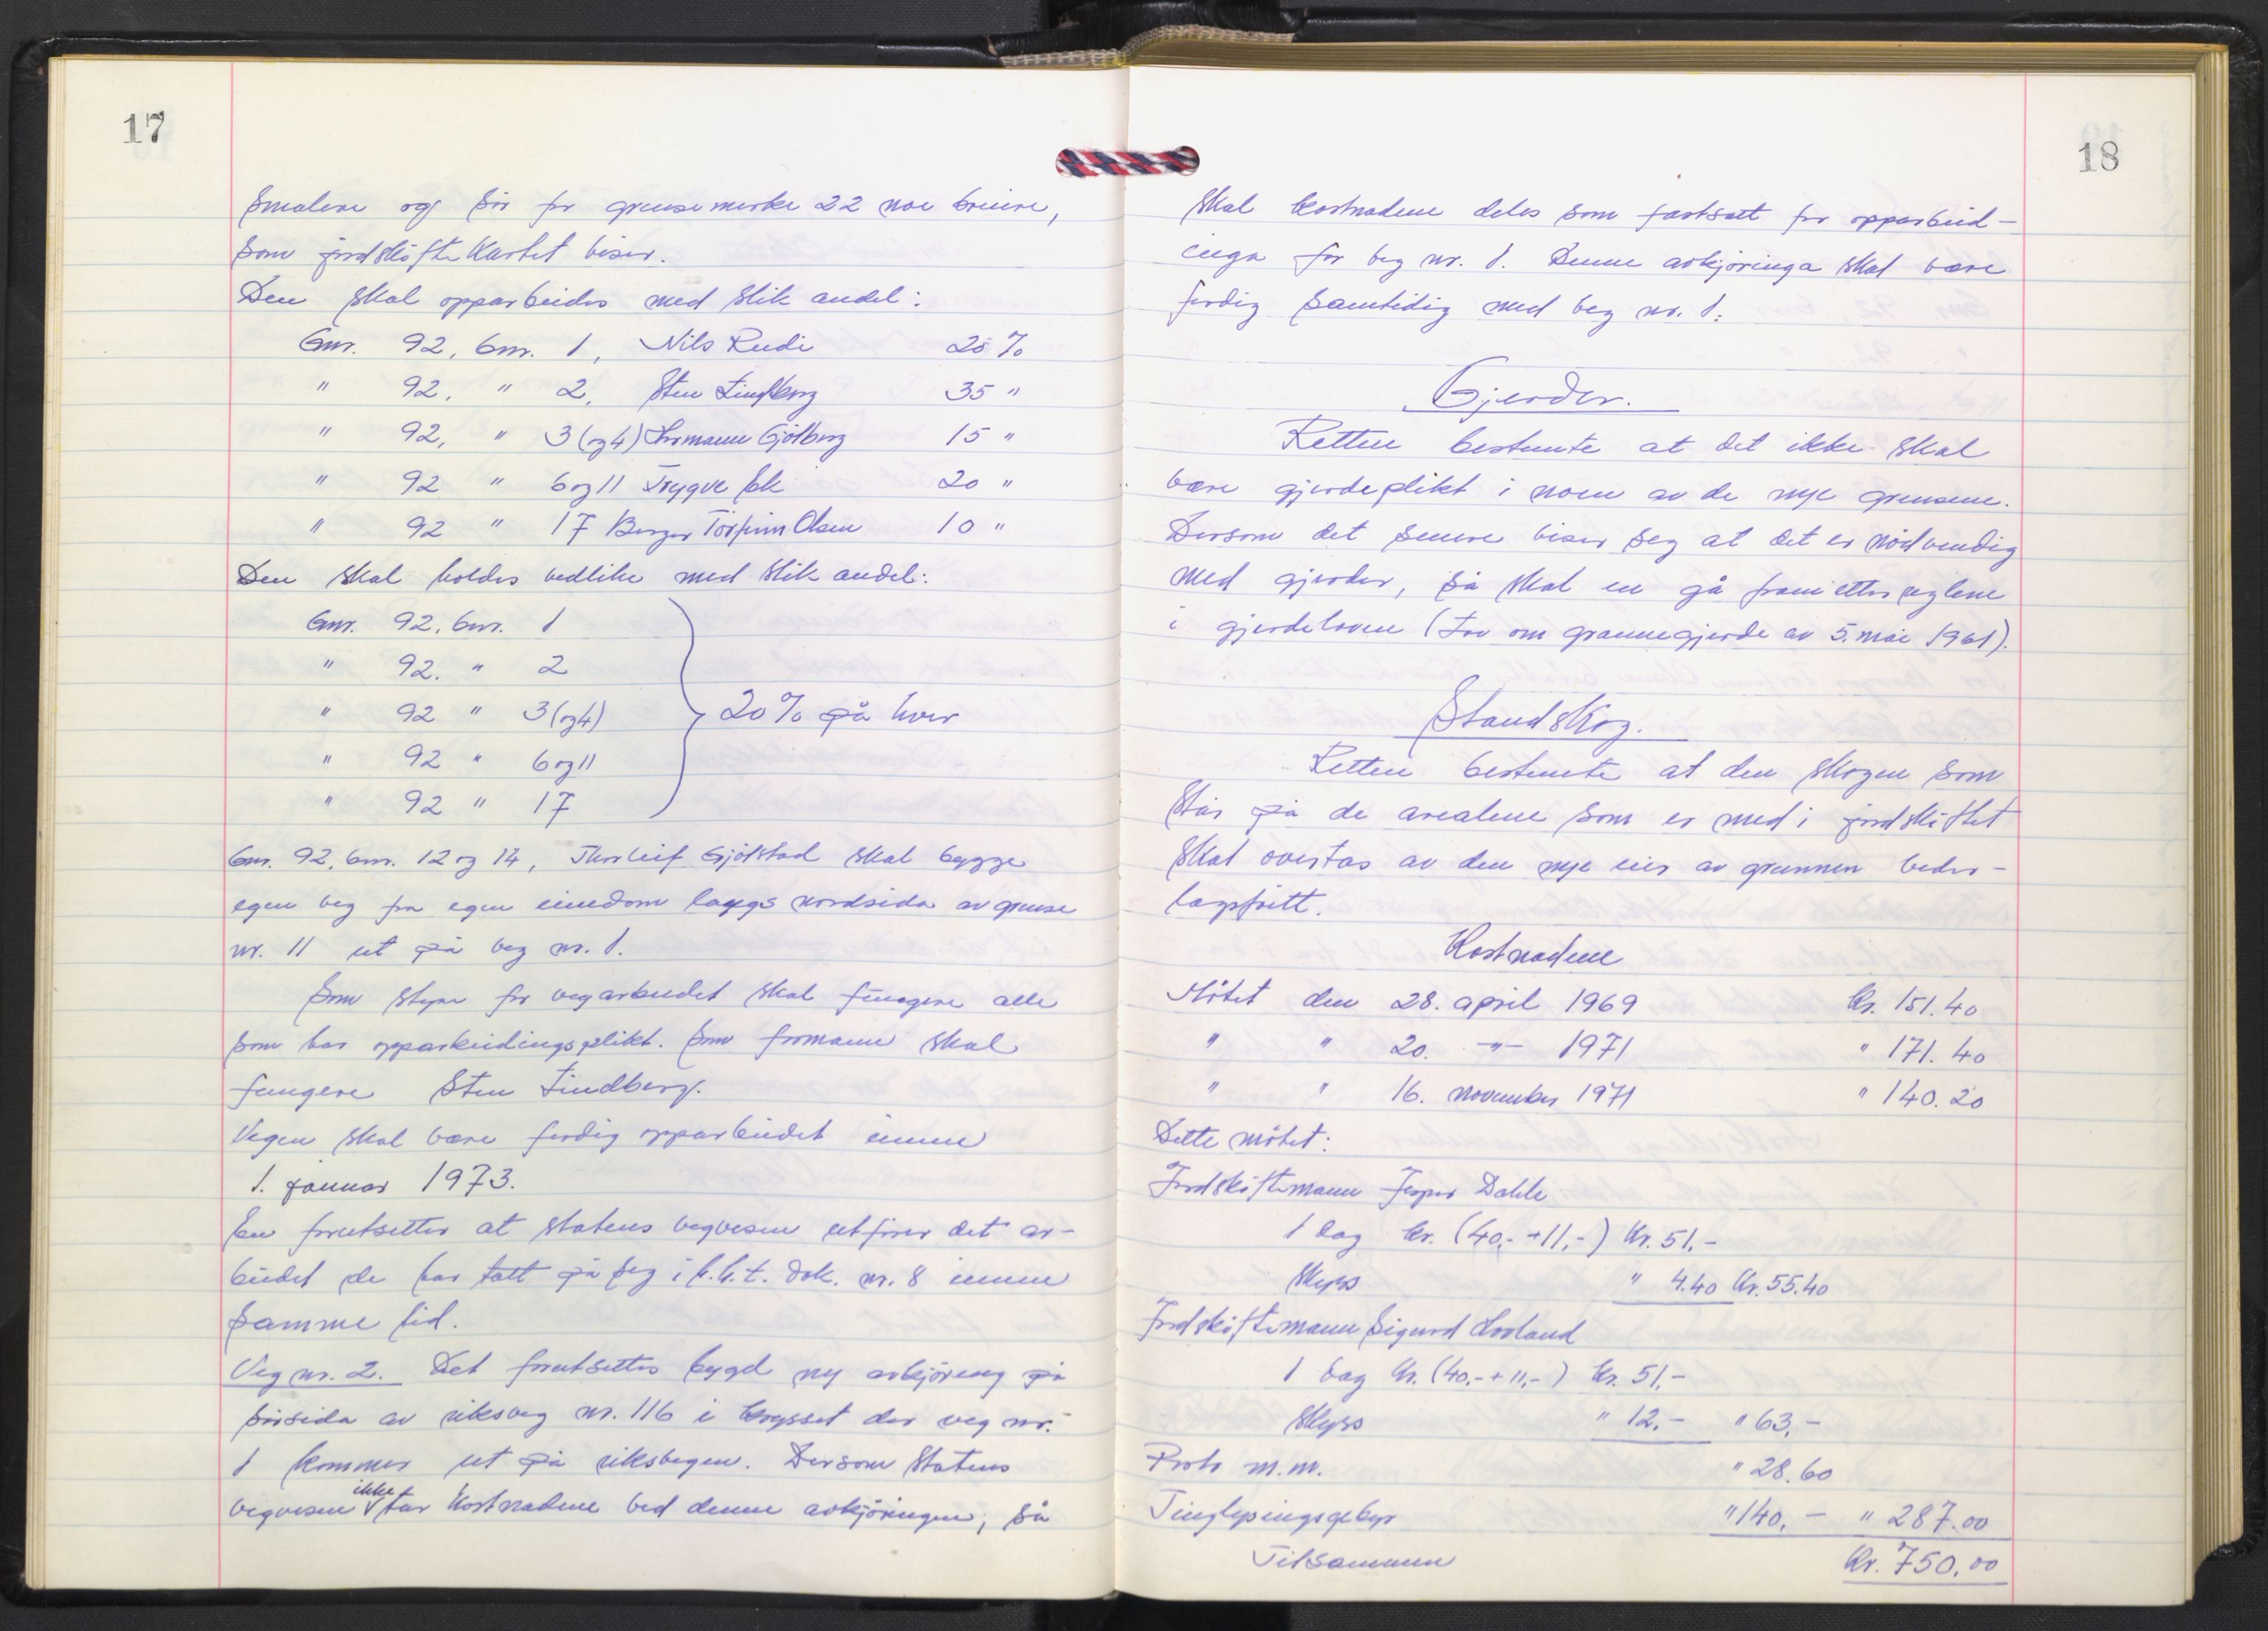 17
smalere og sör for grensemerke 22 noe breiere,
som jordskiftekartet viser.
Den skal opparbeides med slik andel:
Gnr. 92, bnr. 1, Nils Rudi 20 %
" 92, " 2, Sten Lindberg 35 "
" 92, " 3 (og 4) Hermann Gjölberg 15 "
" 92 " 6 og 11 Trygve Ek 20 "
" 92 " 17 Berger Torfinn Olsen 10 "
Den skal holdes vedlike med slik andel:
Gnr. 92, bnr. 1
" 92. " 2
" 92 " 3 (og 4) 20 % på hver
" 92 " 6 og 11
" 92 " 17
Gnr. 92, bnr. 12 og 14, Thorleif Gjölstad skal bygge
egen veg fra egen eiendom langs nordsida av grense
nr. 11 ut på veg nr. 1.
Som styre for vegarbeidet skal fungere alle
som har opparbeidingsplikt. Som formann skal
fungere Sten Lindberg.
Vegen skal være ferdig opparbeidet innen
1. januar 1973.
En forutsetter at statens vegvesen utfører det ar-
beidet de har tatt på seg i h.h.t. dok. nr. 8 innen
samme tid.
Veg nr. 2. Det forutsettes bygd ny avkjöring på
sörsida av riksveg nr. 116 i krysset der veg nr.
1 kommer ut på riksvegen. Dersom Statens
vegvesen ikke tar kostnadene ved denne avkjöringen, så
18
skal kostnadene deles som fastsatt for opparbeid-
inga for veg nr. 1. Denne avkjöringa skal være
ferdig samtidig med veg nr. 1.
Gjerder.
Retten bestemte at det ikke skal
være gjerdeplikt i noen av de nye grensene.
Dersom det senere viser seg at det er nödvendig
med gjerder, så skal en gå fram etter reglene
i gjerdeloven (Lov om grannegjerde av 5. mai 1961).
Standskog.
Retten bestemte at den skogen som
står på de arealene som er med i jordskiftet
skal overtas av den nye eier av grunnen veder-
lagsfritt.
Kostnadene
Mötet den 28. april 1969 kr. 151.40
" " 20. -"- 1971 " 171.40
" " 16. november 1971 " 140.20
Dette mötet:
Jordskiftemann Jesper Dahle
1 dag kr. (40,- + 11,-) kr. 51,-
Skyss " 4.40 kr. 55.40
Jordskiftemann Sigurd Hovland
1 dag kr. (40,- + 11,-) kr. 51,-
Skyss " 12,- " 63,-
Porto m.m. " 28.60
Tinglysingsgebyr " 140,- " 287.00
Tilsammen kr. 750.00